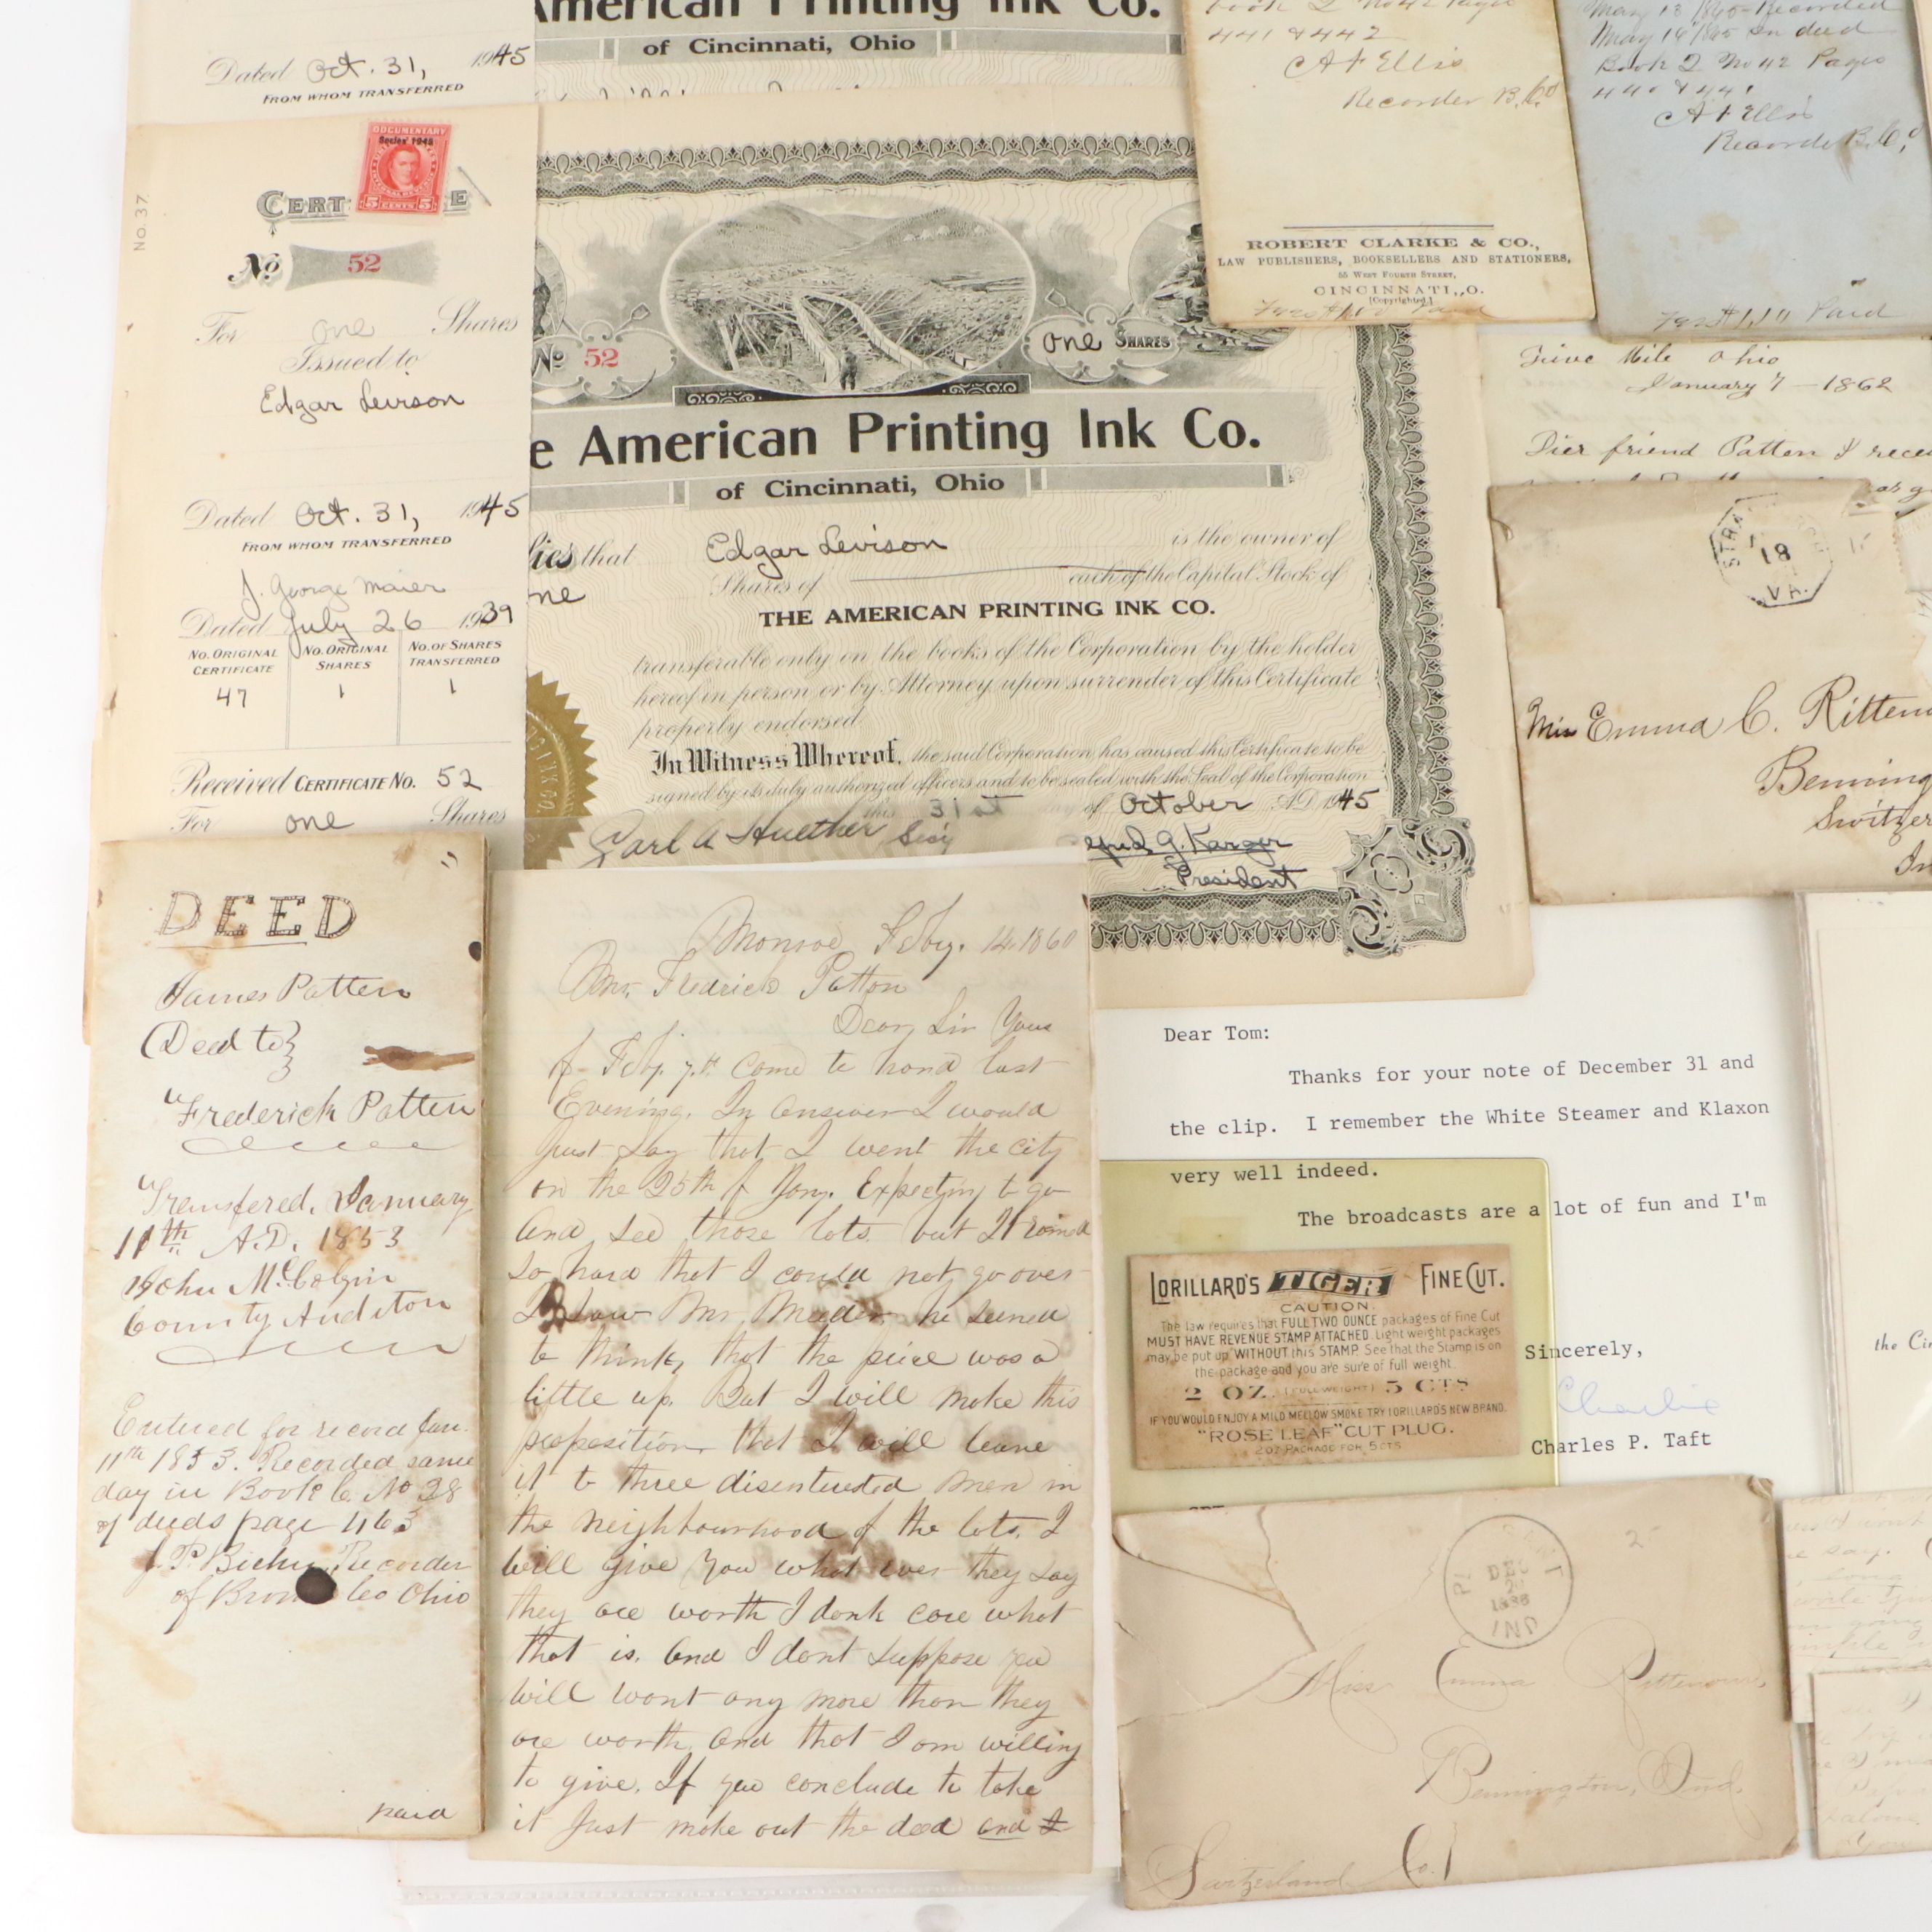 Dated Oct. 31, 1945
FROM WHOM TRANSFERRED
American Printing Ink Co.
of Cincinnati, Ohio
DOCUMENTARY
Series 1945
5 CENTS 5
No. 37
CERT E
No 52
For one Shares
Issued to
Edgar Levison
Dated Oct. 31, 1945
FROM WHOM TRANSFERRED
J. George Maier
Dated July 26 1939
NO. ORIGINAL CERTIFICATE
NO. ORIGINAL SHARES
NO. OF SHARES TRANSFERRED
47 1 1
Received CERTIFICATE NO. 52
For one Shares
No 52
one SHARES
e American Printing Ink Co.
of Cincinnati, Ohio
fies that Edgar Levison is the owner of
ne Shares of each of the Capital Stock of
THE AMERICAN PRINTING INK CO.
transferable only on the books of the Corporation by the holder
hereof in person or by Attorney upon surrender of this Certificate
properly endorsed
In Witness Whereof, the said Corporation has caused this Certificate to be
signed by its duly authorized officers and to be sealed with the Seal of the Corporation
this 31st day of October A.D. 1945
Carl A Huether Sec'y
G. Karger
President
441 & 442
A F Ellis
Recorder B. Co
ROBERT CLARKE & CO.,
LAW PUBLISHERS, BOOKSELLERS AND STATIONERS,
55 WEST FOURTH STREET,
CINCINNATI, O.
[Copyrighted.]
Paid
May 13 1865 Recorded
May 16 1865 in deed
Book 2 No 42 Pages
440 & 441
A F Ellis
Recorder B. Co
Paid
Five Mile Ohio
January 7 - 1862
Dier friend Patten I recei
18
VA.
Miss Emma C. Ritten
Benning
Switzer
In
DEED
James Patten
Deed to
Frederick Patten
Transfered, January
11th A.D. 1853
John McColgin
County Auditor
Entered for record Jan.
11th 1853. Recorded same
day in Book C No 28
of deeds page 463
Recorder
of Brown Co Ohio
paid
Monroe Feby. 14 1860
Mr. Fredrick Patton
Dear Sir Yours
of Feby. 7th Come to hand last
Evening. In Answer I would
Just Say that I went the City
on the 25th of Jany. Expecting to go
And See those lots but It raind
So hard that I could not go over
I Saw Mr. Meader he Seemd
to think, that the price was a
little up. But I will make this
proposition that I will leave
it to three disentersted men in
the neighbourhood of the lots. I
will give you what ever they Say
they are worth I dont care what
that is. And I dont Suppose you
will want any more than they
are worth, and that I am willing
to give. If you conclude to take
it Just make out the deed and I
Dear Tom:
Thanks for your note of December 31 and
the clip. I remember the White Steamer and Klaxon
very well indeed.
The broadcasts are a lot of fun and I'm
Sincerely,
Charlie
Charles P. Taft
LORILLARD'S TIGER FINE CUT.
CAUTION.
The law requires that FULL TWO OUNCE packages of Fine Cut
MUST HAVE REVENUE STAMP ATTACHED. Light weight packages
may be put up WITHOUT this STAMP. See that the Stamp is on
the package and you are sure of full weight.
2 OZ. (FULL WEIGHT) 5 CTS
IF YOU WOULD ENJOY A MILD MELLOW SMOKE TRY LORILLARD'S NEW BRAND.
"ROSE LEAF" CUT PLUG.
2 OZ PACKAGE FOR 5 CTS
the Ci
DEC
IND
Miss Emma Rittenouse
Bennington, Ind.
Switzerland Co.